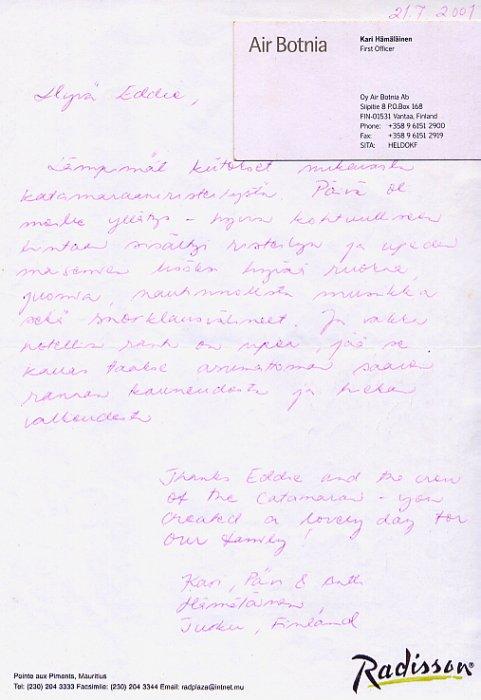 21.7.2001
Air Botnia
Kari Hämäläinen
First Officer
Oy Air Botnia Ab
Siipitie 8 P.O.Box 168
FIN-01531 Vantaa, Finland
Phone: +358 9 6151 2900
Fax: +358 9 6151 2919
SITA: HELDOKF
Hyvä Eddie,
Lämpimät kiitokset mukavasta
katamaraaniristeilystä. Päivä oli
meille yllätys - hyvin kohtuulliseen
hintaan sisältyi risteilyn ja upeden
maisemien lisäksi hyvää ruokaa,
juomia, nautinnollista musiikkia
sekä snorklausvälineet. Ja vaikka
hotellin ranta on upea, jää se
kauas taakse asumattoman saaren
rannan kauneudesta ja hiekan
valkeudesta
Thanks Eddie and the crew
of the Catamaran - you
created a lovely day for
our family!
Kari, Päivi & Antti
Hämäläinen,
Turku, Finland
Pointe aux Piments, Mauritius
Tel: (230) 204 3333 Facsimile: (230) 204 3344 Email: radplaza@intnet.mu
Radisson